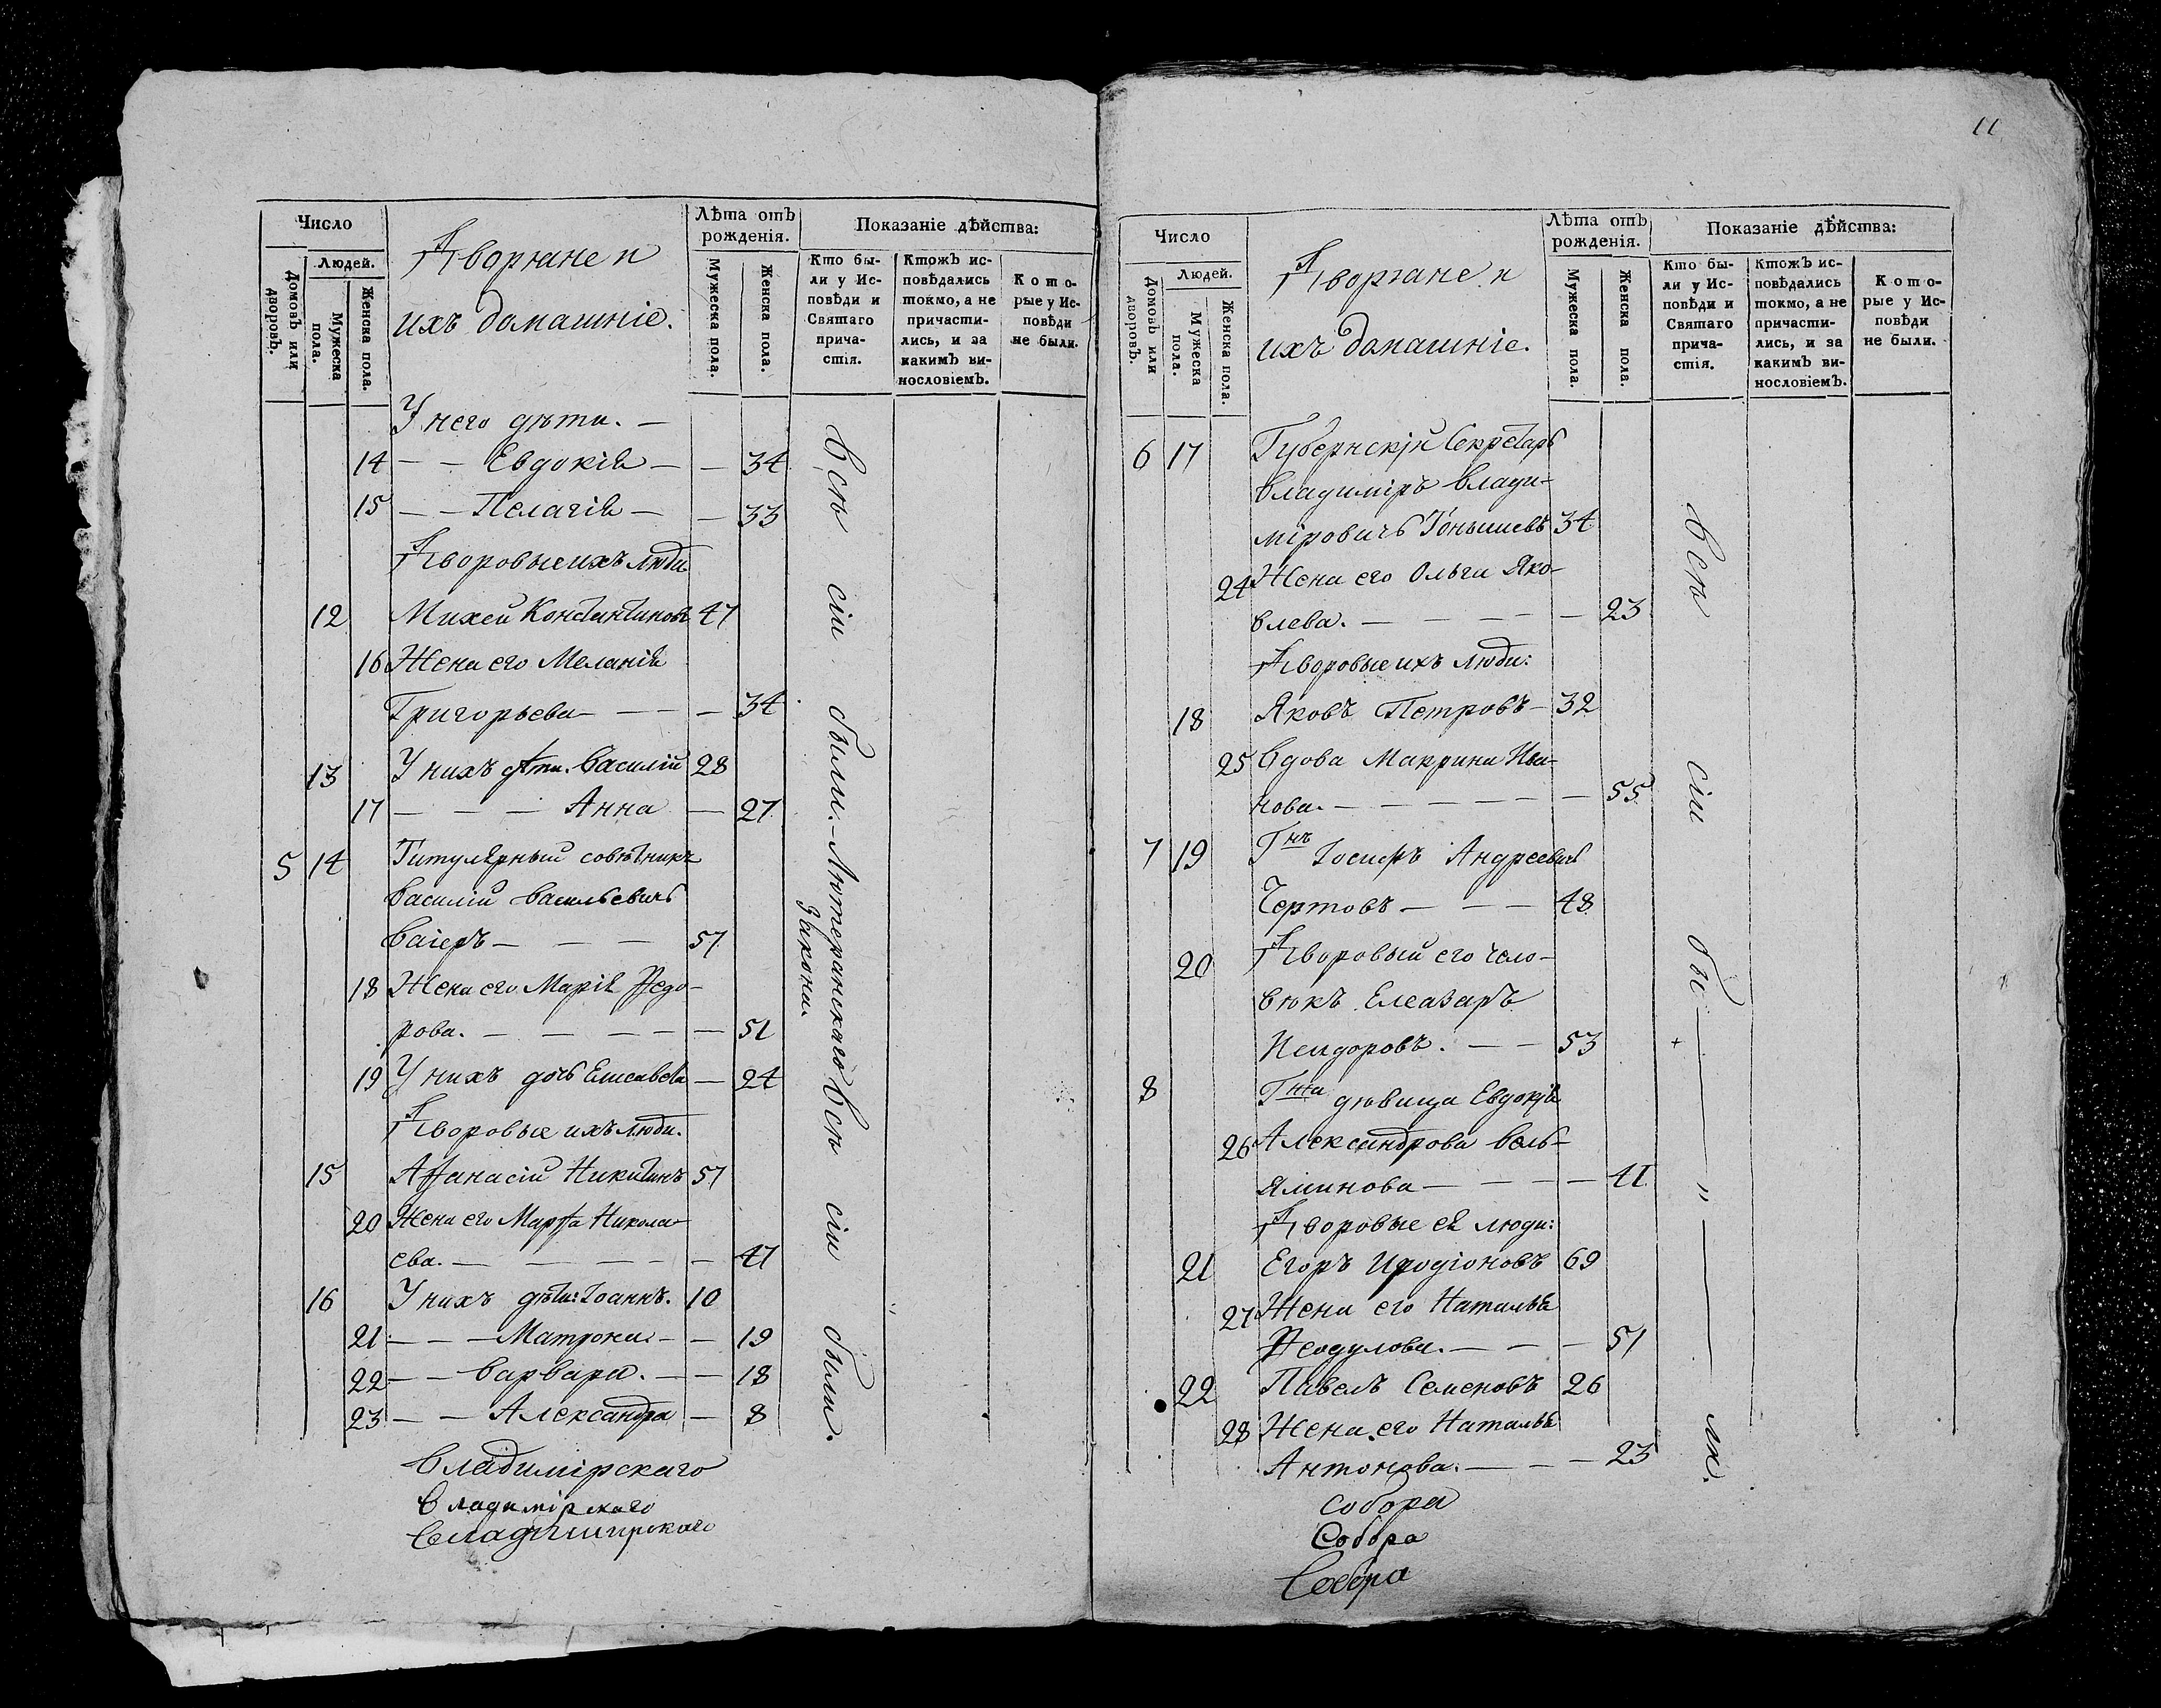 11
Число
Людей.
Домовъ или дворовъ.
Мужеска пола.
Женска пола.
Дворяне и
ихъ домашніе.
Лѣта отъ рожденія.
Мужеска пола.
Женска пола.
Показаніе дѣйства:
Кто бы-
ли у Ис-
повѣди и
Святаго
прича-
стія.
Ктожъ ис-
повѣдались
токмо, а не
причасти-
лись, и за
какимъ ви-
нословіемъ.
Кото-
рые у Ис-
повѣди
не были.
У него дѣти. —
14 — — Евдокія — — 34
15 — — Пелагія — — 33
Дворовые ихъ люди
12 Михей Константиновъ 47
16 Жена его Меланія
Григорьева — — — 34
13 У нихъ дѣти. Василій 28
17 — — — Анна — 27
5 14 Титулярный совѣтникъ
Василій Васильевичь
Ваіеръ — — — 57
18 Жена его Марія Ѳедо-
рова. — — — — — 51
19 У нихъ дочь Елисавета — 24
Дворовые ихъ люди.
15 Аѳанасій Никитинъ 57
20 Жена его Марѳа Никола-
ева. — — — — — 47
16 У нихъ дѣти: Іоаннъ. 10
21 — — — Матрона — — 19
22 — — Варвара. — — 18
23 — — Александра — 8
Всѣ сіи были. — Лютеранскаго
закона.
Всѣ сіи были.
Владимірскаго
Владимірскаго
Владимирскаго
Число
Людей.
Домовъ или дворовъ.
Мужеска пола.
Женска пола.
Дворяне и
ихъ домашніе.
Лѣта отъ рожденія.
Мужеска пола.
Женска пола.
Показаніе дѣйства:
Кто бы-
ли у Ис-
повѣди и
Святаго
прича-
стія.
Ктожъ ис-
повѣдались
токмо, а не
причасти-
лись, и за
какимъ ви-
нословіемъ.
Кото-
рые у Ис-
повѣди
не были.
6 17 Губернскій Секретарь
Владиміръ Влади-
міровичь 34
24 Жена его Ольга Яко-
влева. — — — — — 23
Дворовые ихъ люди:
18 Яковъ Петровъ — 32
25 Вдова Макрина Ива-
нова. — — — — — — 55
7 19 Гнъ Іосифъ Андреевичь
Чертовъ — — — 48
20 Дворовый его чело-
вѣкъ Елеазаръ
Исидоровъ. — — 53
8 Гжа дѣвица Евдокія
26 Александрова Вель-
яминова — — — — 41
Дворовые ея люди:
21 Егоръ Иродіоновъ 69
27 Жена его Наталья
Ѳеодулова. — — — 51
22 Павелъ Семеновъ 26
28 Жена его Наталья
Антонова. — — — 23
Всѣ сіи бы — „ — ли.
собора
Собора
Собора